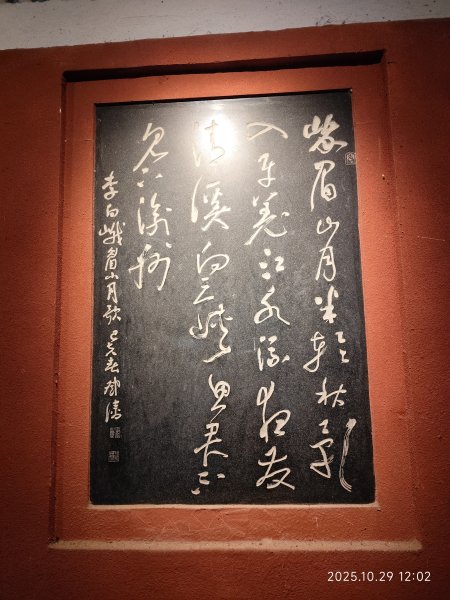 峨眉山月半輪秋影
入平羌江水流夜發
清溪向三峽思君不
見下渝州
李白峨眉山月歌
2025.10.29 12:02